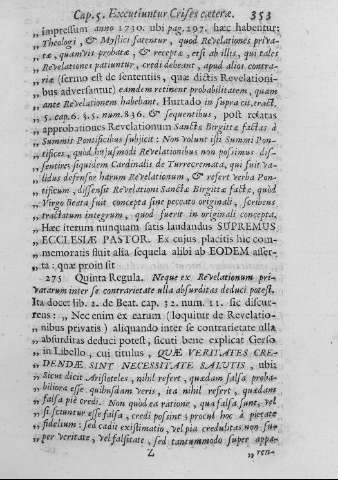 Cap. 5. Excutiuntur Crises cæteræ. 353
„ impressum anno 1730. ubi pag. 297. hæc habentur:
„ Theologi, & Mystici fatentur, quod Revelationes priva-
„ tæ, quamvis probatæ, & receptæ, etsi ab illis, qui tales
„ Revelationes patiuntur, credi debeant, apud alios contra-
„ riæ (sermo est de sententiis, quæ dictis Revelationi-
„ bus adversantur) eamdem retinent probabilitatem, quam
„ ante Revelationem habebant. Hurtado in supra cit. tract.
„ 5. cap. 6. §. 5. num. 836. & sequentibus, post relatas
„ approbationes Revelationum Sanctæ Birgittæ factas à
„ Summis Pontificibus subjicit: Non volunt isti Summi Pon-
„ tifices, quod hujusmodi Revelationibus non possimus dis-
„ sentire siquidem Cardinalis de Turrecremata, qui fuit va-
„ lidus defensor harum Revelationum, & refert verba Pon-
„ tificum, dissensit Revelationi Sanctæ Birgittæ factæ, quòd
„ Virgo Beata fuit concepta sine peccato originali, scribens
„ tractatum integrum, quod fuerit in originali concepta.
„ Hæc iterum nunquam satis laudandus SUPREMUS
„ ECCLESIÆ PASTOR. Ex cujus placitis hic com-
„ memoratis fluit alia sequela alibi ab EODEM asser-
„ ta: quæ proin sit
„ 275 Quinta Regula. Neque ex Revelationum pri-
„ vatarum inter se contrarietate ulla absurditas deduci potest.
Ita docet lib. 2. de Beat. cap. 32. num. 11. sic discur-
rens: „ Nec enim ex earum (loquitur de Revelatio-
„ nibus privatis) aliquando inter se contrarietate ulla
„ absurditas deduci potest, sicuti bene explicat Gerso
„ in Libello, cui titulus, QUÆ VERITATES CRE-
„ DENDÆ SINT NECESSITATE SALUTIS, ubi:
„ Sicut dicit Aristoteles, nihil refert, quædam falsa proba-
„ biliora esse quibusdam veris, ita nihil refert, quædam
„ falsa piè credi. Non quòd ea ratione, qua falsa sunt, vel
„ si sciuntur esse falsa, credi possint; procul hoc à pietate
„ fidelium: sed cadit existimatio, vel pia credulitas non su-
„ per veritate, vel falsitate, sed tantummodo super appa-
Z „ ren-